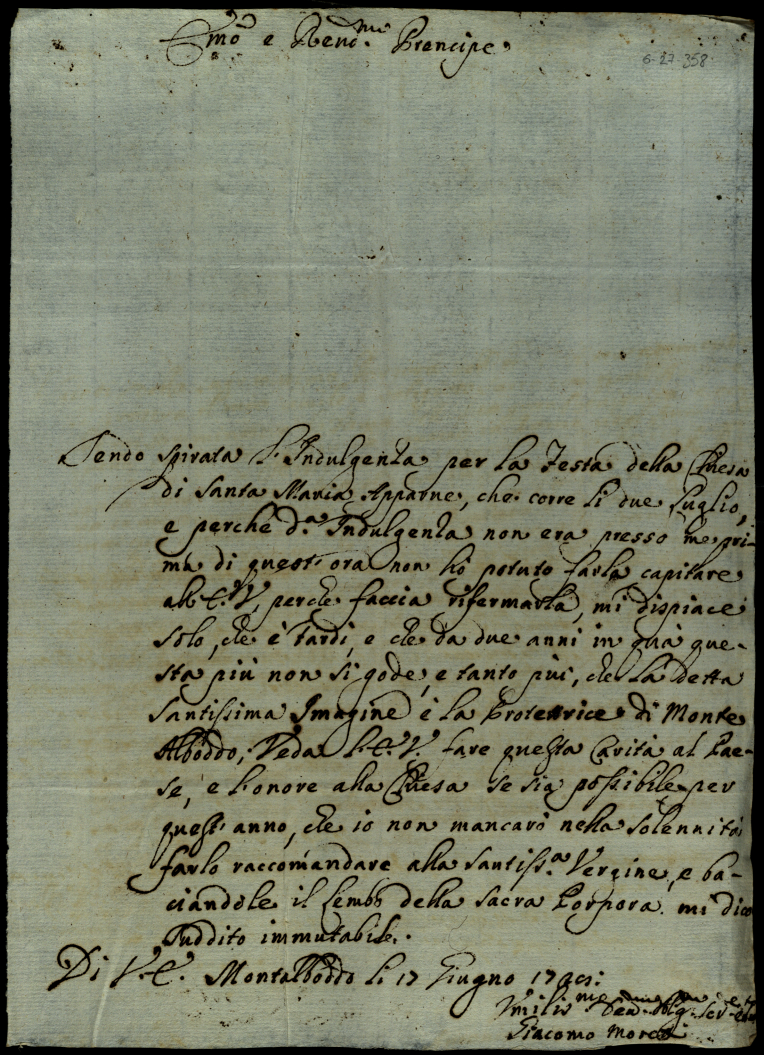 Emo e Revd.mo Prencipe
6-27-358
Sendo spirata l'Indulgenza per la Festa della Chiesa
di Santa Maria Apparue, che corre li due Luglio,
e perche d.a Indulgenza non era presso me pri-
ma di quest'ora non hò potuto farla capitare
all'E.V, perche faccia rifermarla, mi dispiace
solo, che è tardi, e che da due anni in quà que-
sta più non si gode, e tanto più, che la detta
Santissima Imagine è la Protettrice di Monte
Alboddo; Veda l'E.V. fare questa Carità al Pae-
se, e l'onore alla Chiesa se sia possibile per
quest'anno, che io non mancarò nella solennità
farlo raccomandare alla Santiss.a Vergine, e ba-
ciandole il lembo della Sacra Porpora mi dico
suddito immutabile.
Di V.E. Montalboddo li 17 Giugno
Vmiliss.mo
Giacomo